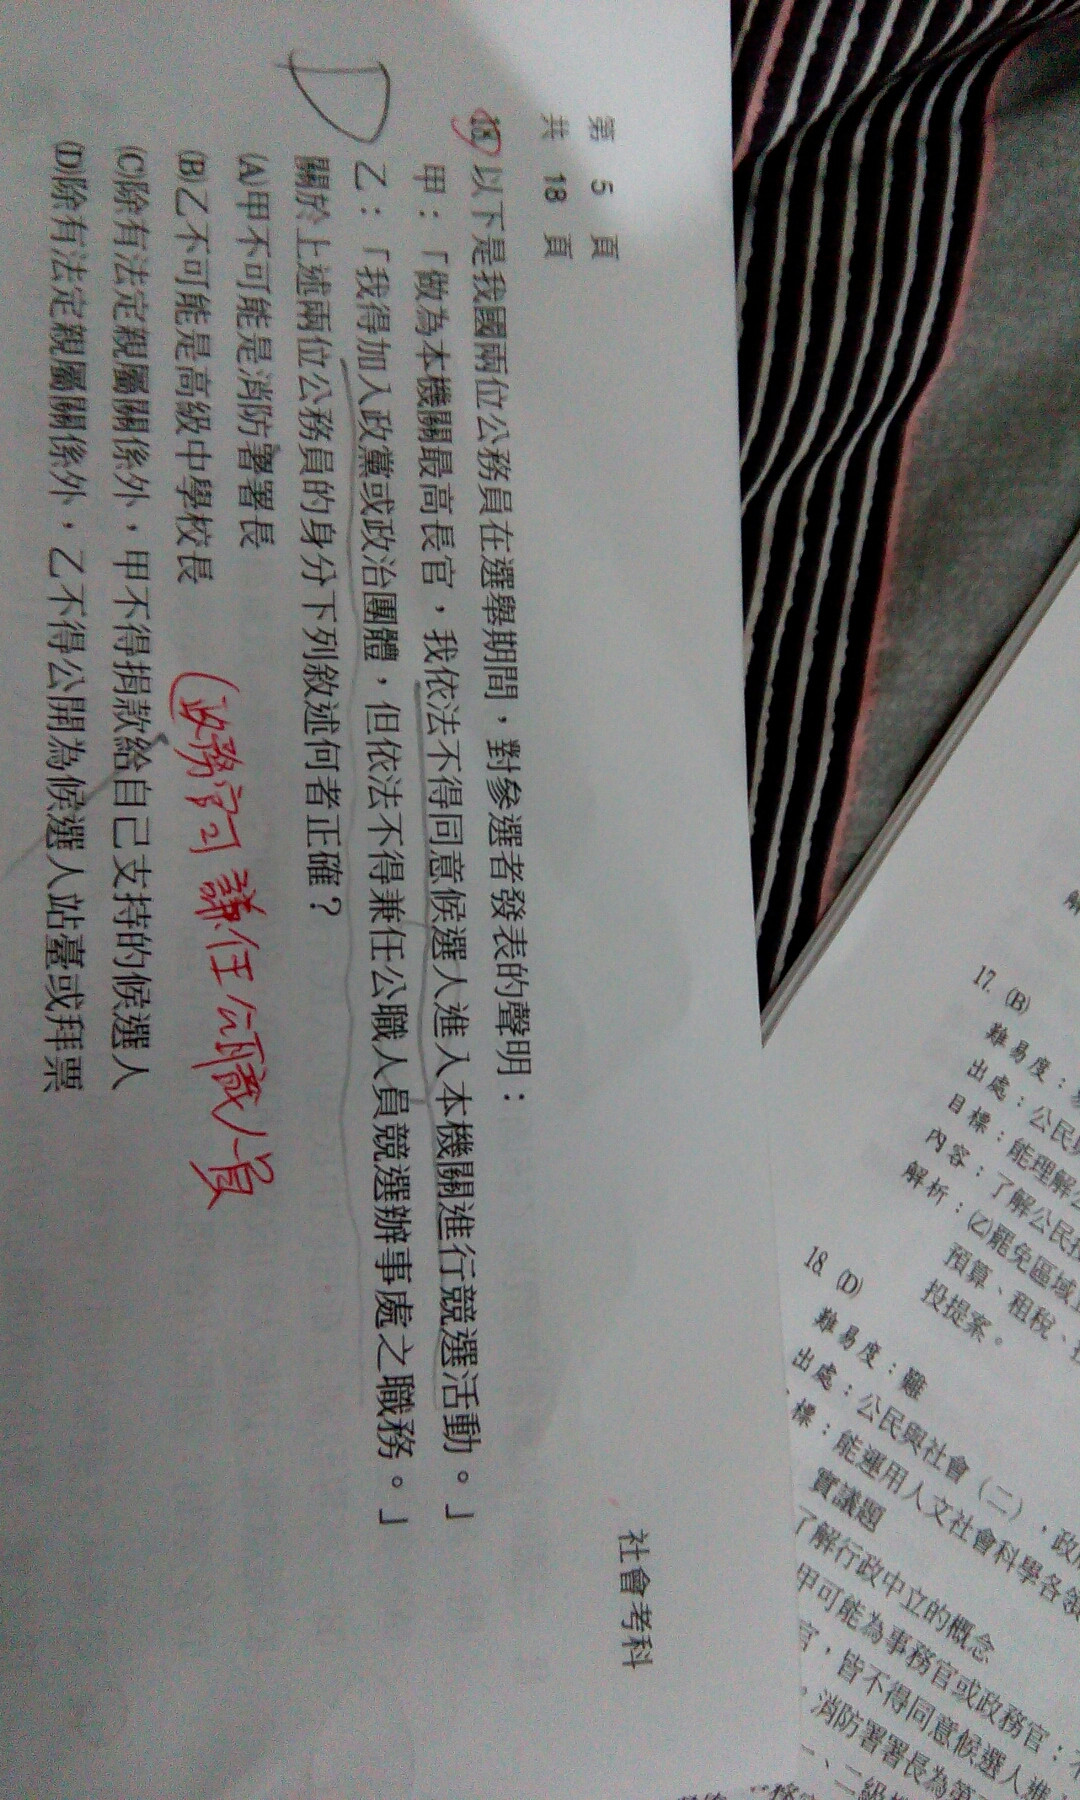 第 5 頁
共 18 頁
社會考科
18. 以下是我國兩位公務員在選舉期間，對參選者發表的聲明：
甲：「做為本機關最高長官，我依法不得同意候選人進入本機關進行競選活動。」
乙：「我得加入政黨或政治團體，但依法不得兼任公職人員競選辦事處之職務。」
關於上述兩位公務員的身分下列敘述何者正確？
(A)甲不可能是消防署署長
(B)乙不可能是高級中學校長
(C)除有法定親屬關係外，甲不得捐款給自己支持的候選人
(D)除有法定親屬關係外，乙不得公開為候選人站臺或拜票
D
政務官可兼任公職人員
17. (B)
難易度：
出處：公民與
目標：能理解公
內容：了解公民投
解析：(乙)罷免區域立
預算、租稅、
投提案。
18. (D)
難易度：難
出處：公民與社會（二），政府
標：能運用人文社會科學各領
實議題
了解行政中立的概念
甲可能為事務官或政務官：
官，皆不得同意候選人進
。消防署署長為第
、二級